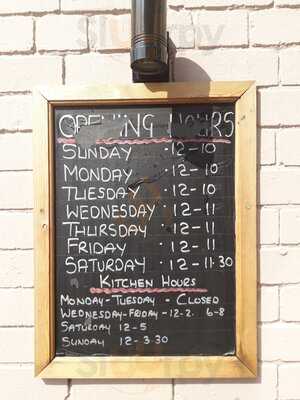 OPENING HOURS
SUNDAY · 12-10
MONDAY · 12-10
TUESDAY · 12-10
WEDNESDAY · 12-11
THURSDAY · 12-11
FRIDAY · 12-11
SATURDAY · 12-11·30
KITCHEN HOURS
MONDAY-TUESDAY - CLOSED
WEDNESDAY-FRIDAY - 12-2. 6-8
SATURDAY 12-5
SUNDAY 12-3.30